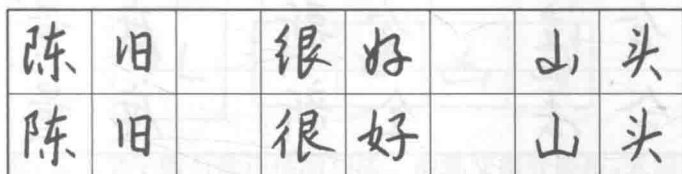 陈旧 很好 山头
陈旧 很好 山头